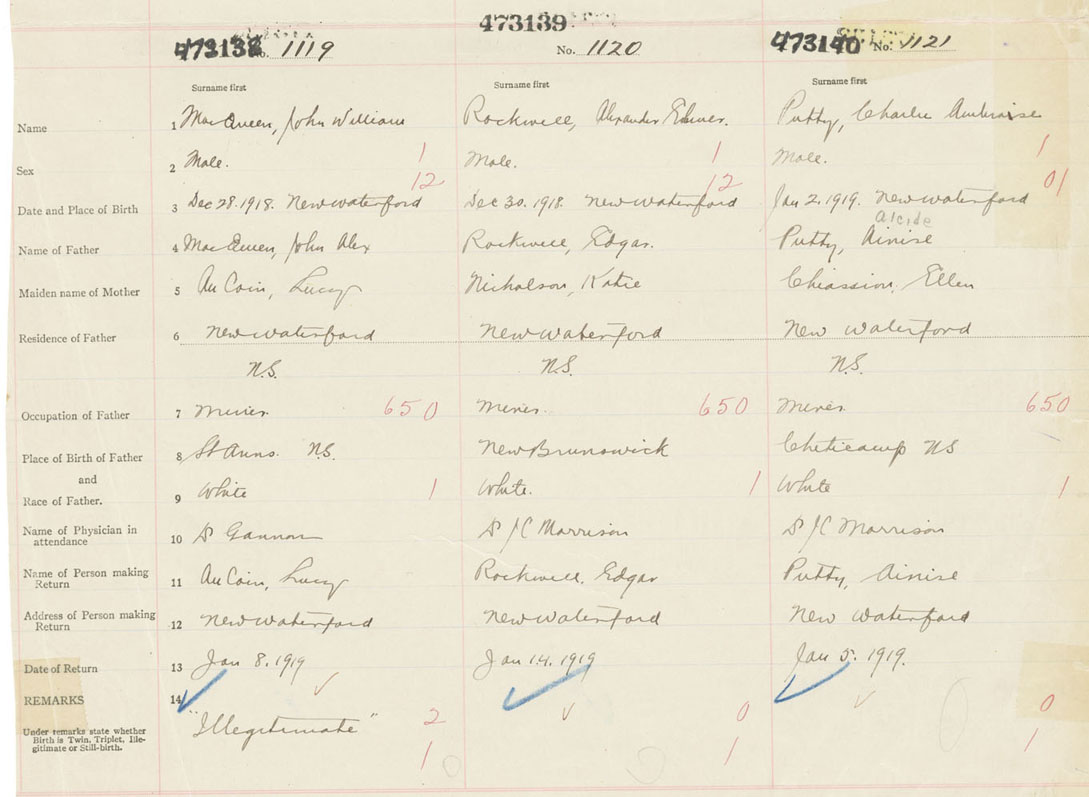 473138 No. 1119
473139
No. 1120
473140 No. 1121
Surname first Surname first Surname first
Name 1 MacQueen, John William Rockwell, Alexander Elmer. Putty, Charlie Ambroise
Sex 2 Male. 1 Male. 1 Male. 1
12 12 01
Date and Place of Birth 3 Dec 28. 1918. New Waterford Dec 30. 1918. New Waterford Jan 2. 1919. New Waterford
Alcide
Name of Father 4 John Alex Rockwell, Edgar. Putty, Ainise
Maiden name of Mother 5 AuCoin, Lucy Nicholson, Katie Chiassion, Ellen
Residence of Father 6 New Waterford New Waterford New Waterford
N.S. N.S. N.S.
Occupation of Father 7 Miner 650 Miner 650 Miner 650
Place of Birth of Father 8 St Anns. N.S. New Brunswick Cheticamp NS
and
Race of Father. 9 White 1 White. 1 White 1
Name of Physician in
attendance 10 Dr Gannon Dr Morrison Dr Morrison
Name of Person making
Return 11 AuCoin, Lucy Rockwell, Edgar Putty, Ainise
Address of Person making
Return 12 New Waterford New Waterford New Waterford
Date of Return 13 Jan 8. 1919 Jan 14. 1919 Jan 5. 1919.
REMARKS 14
Under remarks state whether
Birth is Twin, Triplet, Ille-
gitimate or Still-birth.
"Illegitimate" 2 0 0
1 1 1